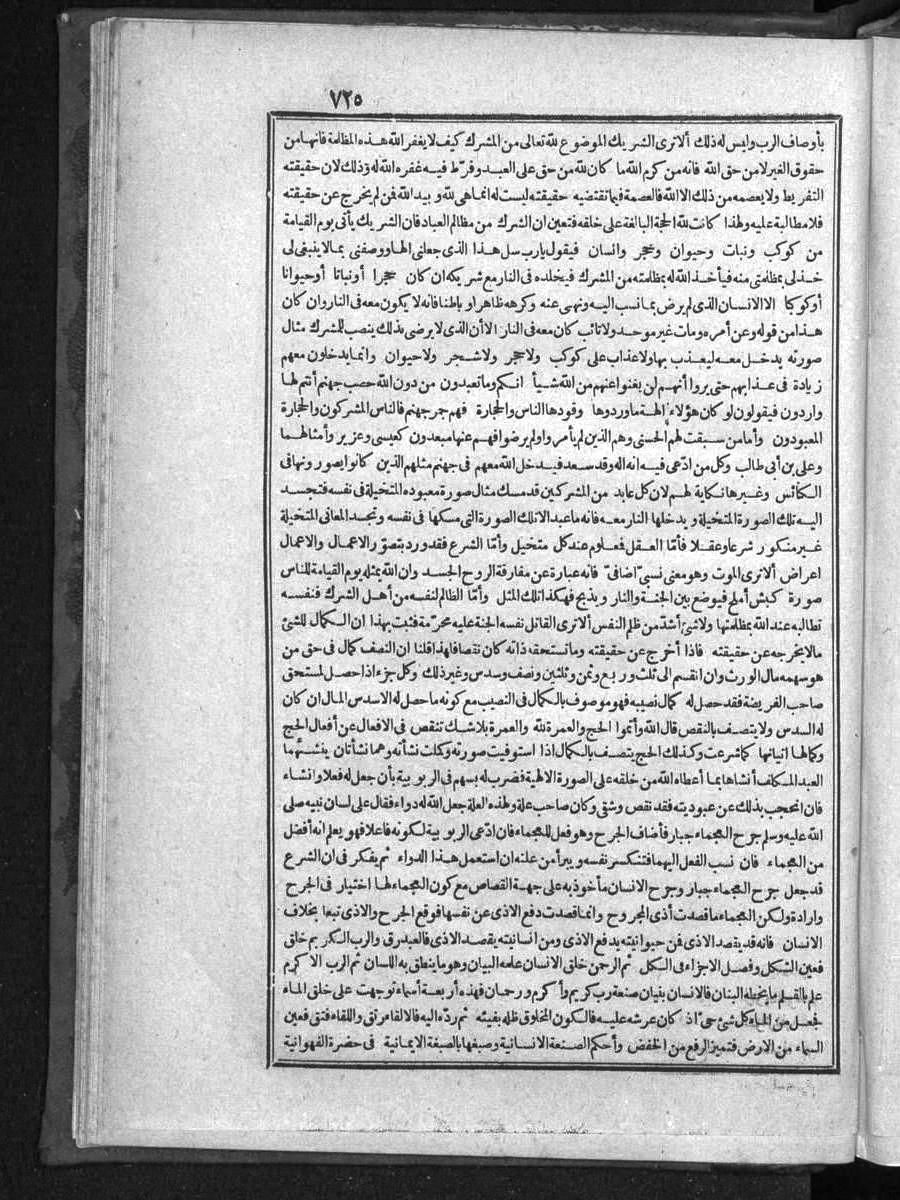 ٧٢٥
بأوصاف الرب وليس له ذلك ألا ترى الشريك الموضوع لله تعالى من المشرك كيف لا يغفر الله هذه المظلمة فانها من
حقوق الغير لا من حق الله فانه من كرم الله ما كان لله من حق على العبد وفرّط فيه غفره الله له وذلك لان حقيقته
التفريط ولا يعصمه من ذلك الا الله فالعصمة فيما تقتضيه حقيقته ليست له انما هى لله وبيد الله فن لم يخرج عن حقيقته
فلا مطالبة عليه ولهذا كانت لله الحجة البالغة على خلقه فتعين ان الشرك من مظالم العباد فان الشريك يأتى يوم القيامة
من كوكب ونبات وحيوان وحجر وانسان فيقول يا رب سل هذا الذى جعلنى الها ووصفنى بما لا ينبغى لى
خذ لى بمظلمتى منه فيأخذ الله له بمظلمته من المشرك فيخلده فى النار مع شريكه ان كان حجرا أو نباتا أو حيوانا
أو كوكبا الا الانسان الذى لم يرض بما نسب اليه ونهى عنه وكرهه ظاهرا وباطنا فانه لا يكون معه فى النار وان كان
هذا من قوله وعن أمره ومات غير موحد ولا تائب كان معه فى النار الا أن الذى لا يرضى بذلك ينصب للمشرك مثال
صورته يدخل معه ليعذب بها ولا عذاب على كوكب ولا حجر ولا شجر ولا حيوان وانما يدخلون معهم
زيادة فى عذابهم حتى يروا أنهم لن يغنوا عنهم من الله شيأ انكم وما تعبدون من دون الله حصب جهنم أنتم لها
واردون فيقولون لو كان هؤلاء الهة ما وردوها وقودها الناس والحجارة فهم جمر جهنم فالناس المشركون والحجارة
المعبودون وأما من سبقت لهم الحسنى وهم الذين لم يأمروا ولم يرضوا فهم عنها مبعدون كعيسى وعزير وأمثالهما
وعلى بن أبى طالب وكل من ادّعى فيه انه اله وقد سعد فيدخل الله معهم فى جهنم مثلهم الذين كانوا يصورونها فى
الكنائس وغيرها نكاية لهم لان كل عابد من المشركين قد مسك مثال صورة معبوده المتخيلة فى نفسه فتجسد
اليه تلك الصورة المتخيلة ويدخلها النار معه فانه ما عبد الا تلك الصورة التى مسكها فى نفسه وتجسد المعانى المتخيلة
غير منكور شرعا وعقلا فأمّا العقل فعلوم عند كل متخيل وأمّا الشرع فقد ورد بتصوّر الاعمال والاعمال
اعراض ألا ترى الموت وهو معنى نسبىّ اضافىّ فانه عبارة عن مفارقة الروح الجسد وان الله يمثله يوم القيامة للناس
صورة كبش أملح فيوضع بين الجنة والنار ويذبح فهكذا تلك المثل وأمّا الظالم لنفسه من أهل الشرك فنفسه
تطالبه عند الله بمظلمتها ولا شئ أشدّ من ظلم النفس ألا ترى القاتل نفسه الجنة عليه محرّمة فثبت بهذا ان الكمال للشئ
ما لا يخرجه عن حقيقته فاذا أخرج عن حقيقته وما تستحقه ذاته كان نقصا فلهذا قلنا ان النصف كمال فى حق من
هو سهمه مال الورث وان انقسم الى ثلث وربع وثمن وثلثين ونصف وسدس وغير ذلك وكل جزء اذا حصل لمستحق
صاحب الفريضة فقد حصل له كمال نصيبه فهو موصوف بالكمال فى النصيب مع كونه ما حصل له الا سدس المال ان كان
له السدس ولا يتصف بالنقص قال الله وأتموا الحج والعمرة لله والعمرة بلا شك تنقص فى الافعال عن أفعال الحج
وكمالها اتيانها كما شرعت وكذلك الحج يتصف بالكمال اذا استوفيت صورته وكملت نشأته وهما نشأتان ينشئهما
العبد المكلف أنشاها بما أعطاه الله من خلقه على الصورة الالهية فضرب له بسهم فى الربوبية بأن جعل له فعلا وانشاء
فان انحجب بذلك عن عبوديته فقد نقص وشقى وكان صاحب علة ولهذه العلة جعل الله له دواء فقال على لسان نبيه صلى
الله عليه وسلم جرح العجماء جبار فأضاف الجرح وهو فعل للعجماء فان ادّعى الربوبية لكونه فاعلا فهو يعلم انه أفضل
من العجماء فان نسب الفعل اليها فتنكسر نفسه ويبرأ من علته ان استعمل هذا الدواء ثم يفكر فى ان الشرع
قد جعل جرح العجماء جبار وجرح الانسان مأخوذ به على جهة القصاص مع كون العجماء لها اختيار فى الجرح
وارادة ولكن العجماء ما قصدت أذى المجروح وانما قصدت دفع الاذى عن نفسها فوقع الجرح والاذى تبعا بخلاف
الانسان فانه قد يقصد الاذى فن حيوانيته يدفع الاذى ومن انسانيته يقصد الاذى فالعبد رق والرب الكريم خلق
فعين الشكل وفصل الاجزاء فى الكل ثم الرحمن خلق الانسان علمه البيان وهو ما ينطق به اللسان ثم الرب الاكرم
علم بالقلم ما يخطه البنان فالانسان بنيان صنعة رب كريم وأكرم ورحمان فهذه أربعة أسماء توجهت على خلق الماء
فجعل من الماء كل شئ حىّ اذ كان عرشه عليه فالكون المخلوق ظله بفيئه ثم ردّه اليه فالالقاء رتق واللقاء فتق فعين
السماء من الارض فتميز الرفع من الخفض وأحكم الصنعة الانسانية وصبغها بالصبغة الايمانية فى حضرة الفهوانية